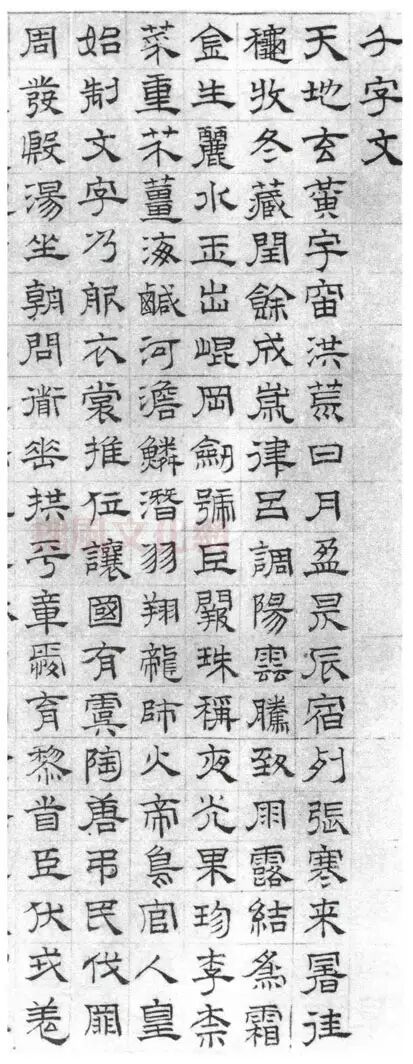 千字文
天地玄黃宇宙洪荒日月盈昃辰宿列張寒来暑往
穐收冬藏閏餘成歲律呂調陽雲騰致雨露結爲霜
金生麗水玉出崐岡劒號巨闕珠稱夜光果珍李柰
菜重芥薑海鹹河澹鱗潛羽翔龍師火帝鳥官人皇
始制文字乃服衣裳推位讓國有虞陶唐弔民伐罪
周發殷湯坐朝問道垂拱平章愛育黎首臣伏戎羌